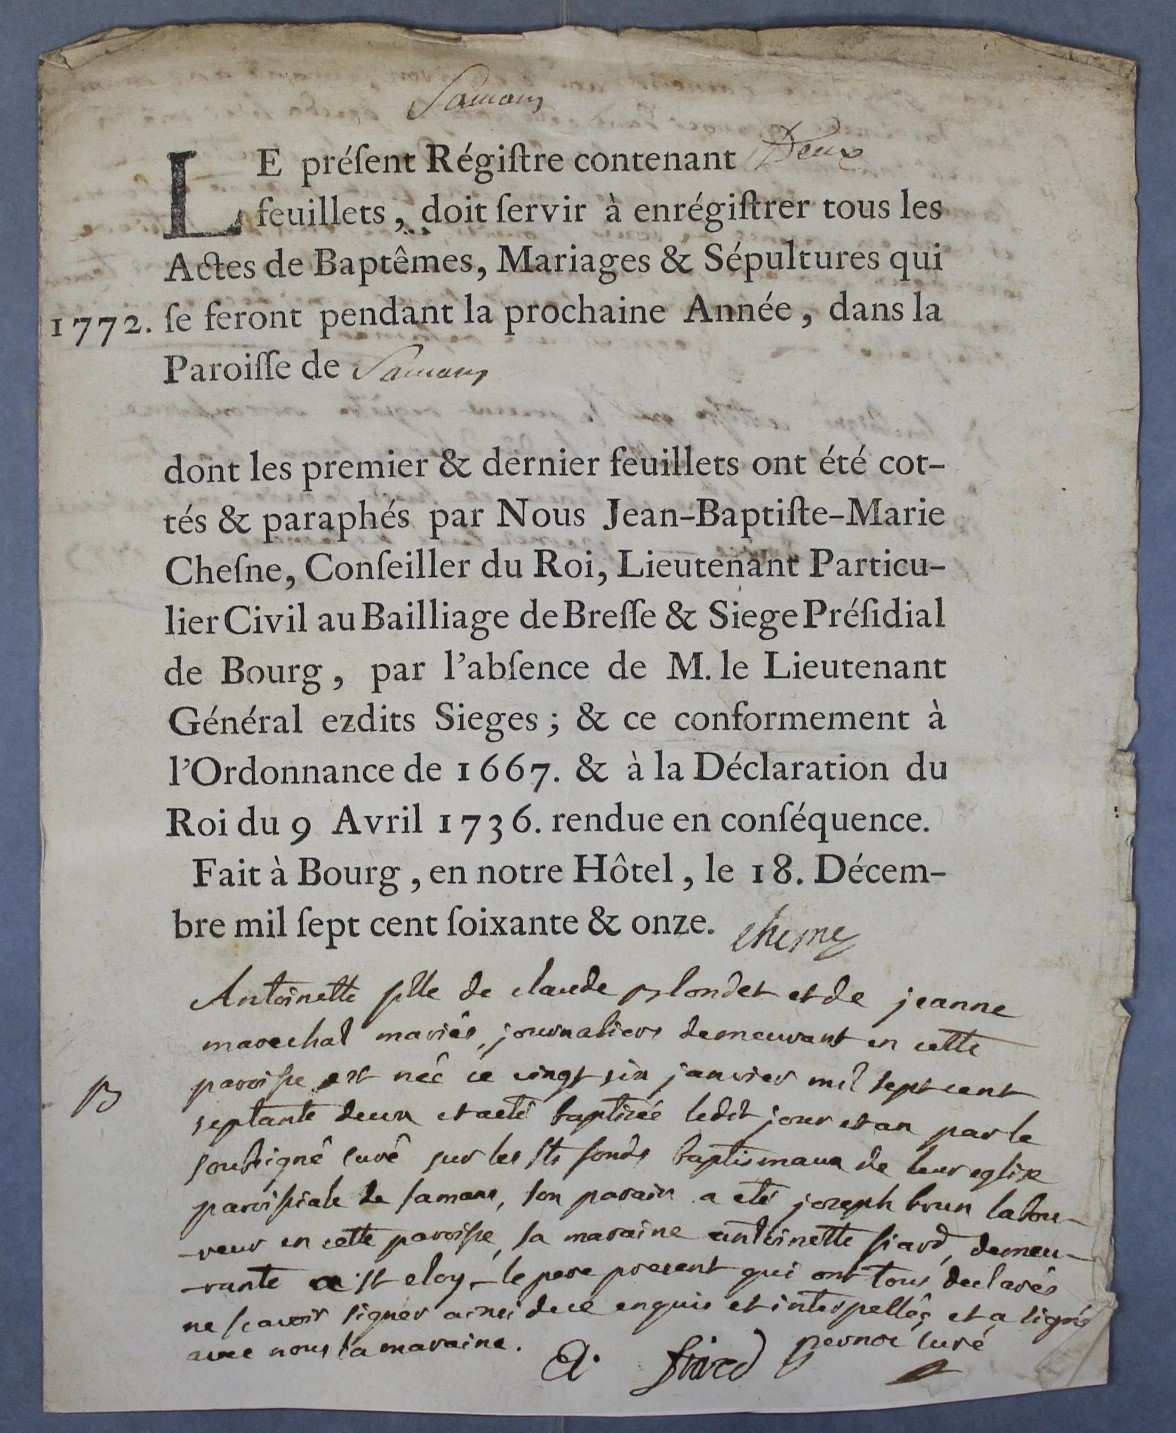 Samans
LE préſent Régiſtre contenant Deux
feuillets, doit ſervir à enrégiſtrer tous les
Actes de Baptêmes, Mariages & Sépultures qui
1772. ſe feront pendant la prochaine Année, dans la
Paroiſſe de Samans
dont les premier & dernier feuillets ont été cot-
tés & paraphés par Nous Jean-Baptiſte-Marie
Cheſne, Conſeiller du Roi, Lieutenant Particu-
lier Civil au Bailliage de Breſſe & Siege Préſidial
de Bourg, par l'abſence de M. le Lieutenant
Général ezdits Sieges ; & ce conformement à
l'Ordonnance de 1667. & à la Déclaration du
Roi du 9 Avril 1736. rendue en conſéquence.
Fait à Bourg, en notre Hôtel, le 18. Décem-
bre mil ſept cent ſoixante & onze. chesne
Antoinette fille de claude blondet et de jeanne
marechal mariés, journaliers demeurant en cette
B paroisse est néé ce vingt six janvier mil sept cent
septante deux et a eté baptizée ledit jour et an par le
soubsigné curé sur les sts fonds baptismaux de leur eglise
paroissiale de samans, son parain a eté joseph brun labou-
-reur en cette paroisse, sa maraine antoinette siard, demeu-
-rante a st eloy, le pere present qui ont tous declarés
ne scavoir signer ainsi de ce enquis et interpellés et a signé
avec nous la maraine.
A. siard pernot curé